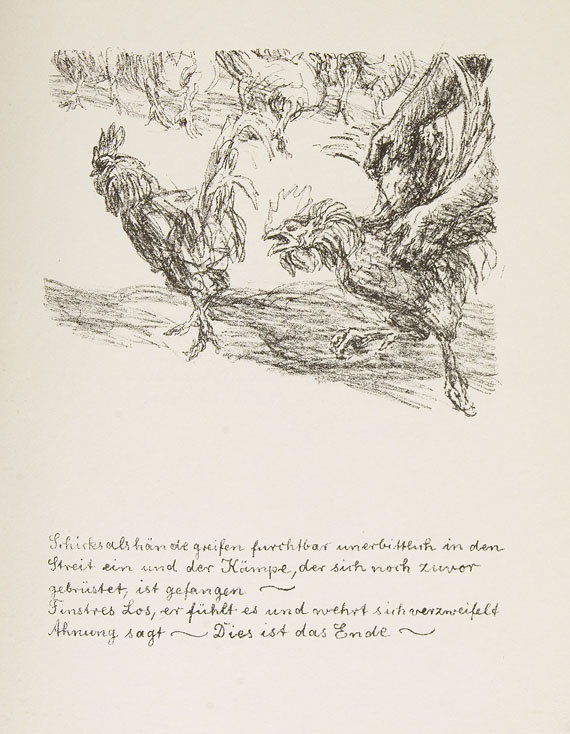 Schicksalshände greifen furchtbar unerbittlich in den
Streit ein und der Kämpe, der sich noch zuvor
gebrüstet, ist gefangen ~
Finstres Los, er fühlt es und wehrt sich verzweifelt
Ahnung sagt ~ Dies ist das Ende ~